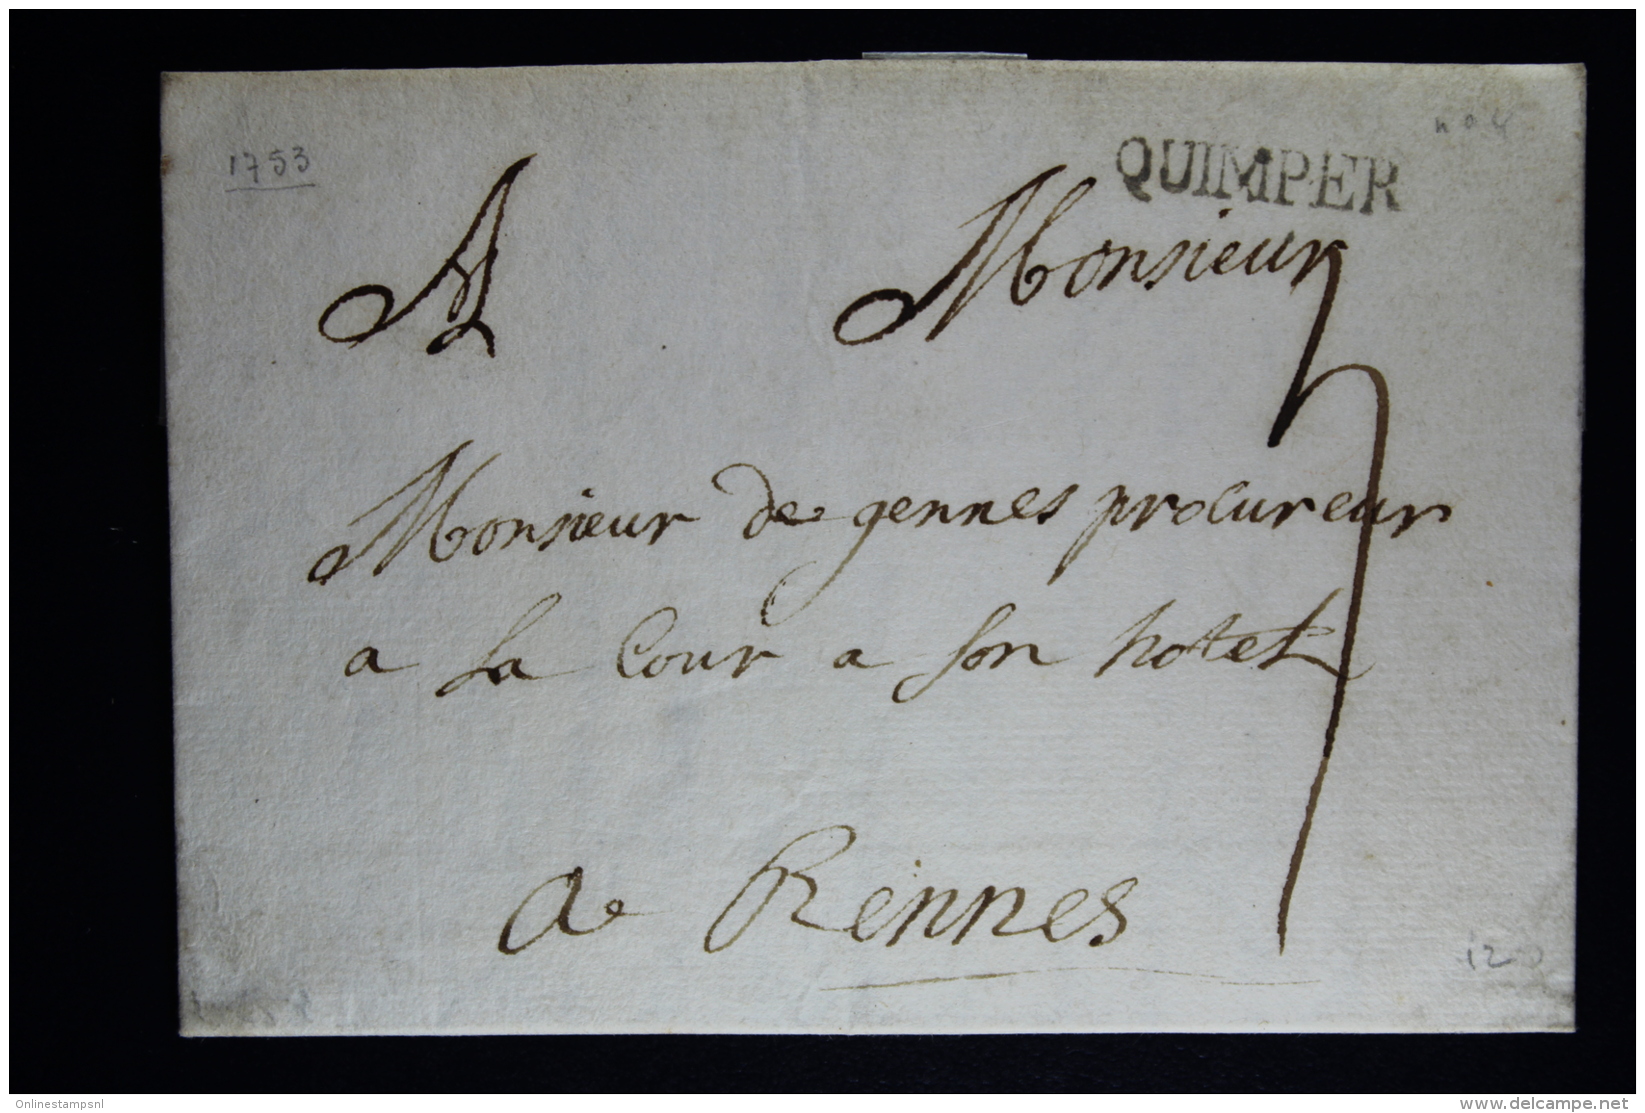 1753
no 4
QUIMPER
A Monsieur
7
Monsieur de gennes procureur
a La Cour a son hotel
a Rennes
120
Onlinestampsnl
delcampe.net